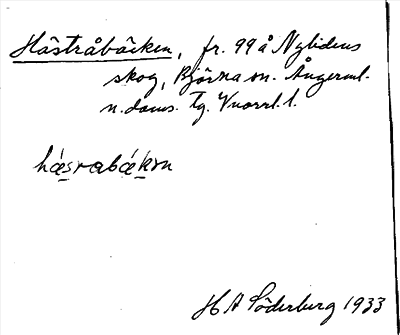 Hästråbäcken, fr. 99 å Nylidens
skog, Björna sn. Ångerml.
n. doms. Tg.
hæsrabækƏn
H A Söderberg 1933